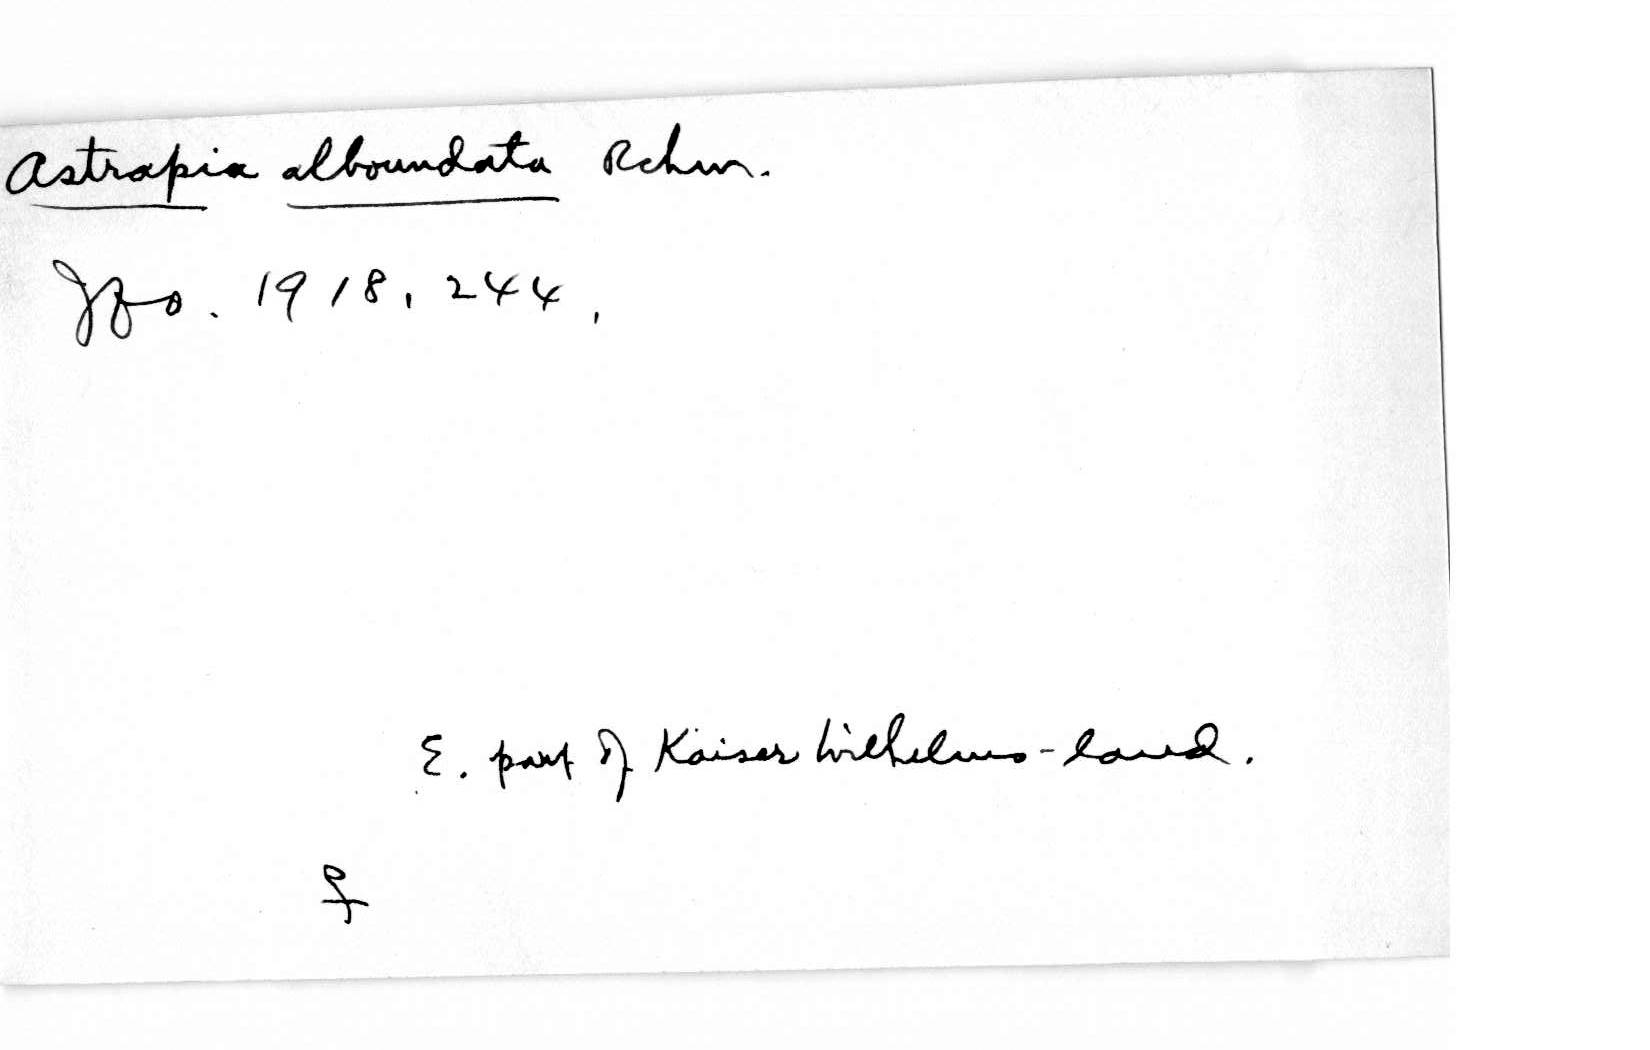 Astrapia alboundata Rchw.
Jfo. 1918, 244,
E. part of Kaiser Wilhelms-land.
♀